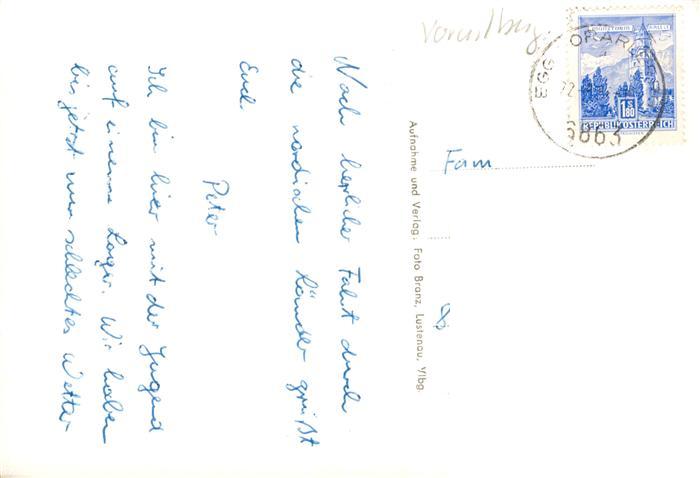 Nach herrlicher Fahrt durch
die nordischen Länder grüßt
Euch
Peter
Ich bin hier mit der Jugend
auf einem Lager. Wir haben
bis jetzt nur schlechtes Wetter
Aufnahme und Verlag: Foto Branz, Lustenau, Vlbg.
Vorarlberg.
Fam
EGG
6863
1.80
REPUBLIK ÖSTERREICH